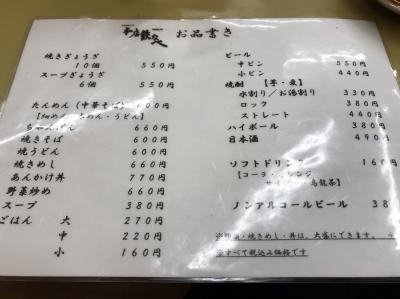 お品書き
焼きぎょうざ
10個 550円
スープぎょうざ
6個 550円
たんめん（中華そば） 600円
ちゃんぽん 660円
焼きそば 600円
焼うどん 600円
焼きめし 660円
あんかけ丼 770円
野菜炒め 660円
スープ 380円
ごはん 大 270円
中 220円
小 160円
ビール
中ビン 550円
小ビン 440円
焼酎 【芋・麦】
水割り／お湯割り 330円
ロック 380円
ストレート 440円
ハイボール 380円
日本酒 490円
ソフトドリンク 160円
烏龍茶】
ノンアルコールビール 38
・焼きめし・丼は、大盛にできます。
※すべて税込み価格です